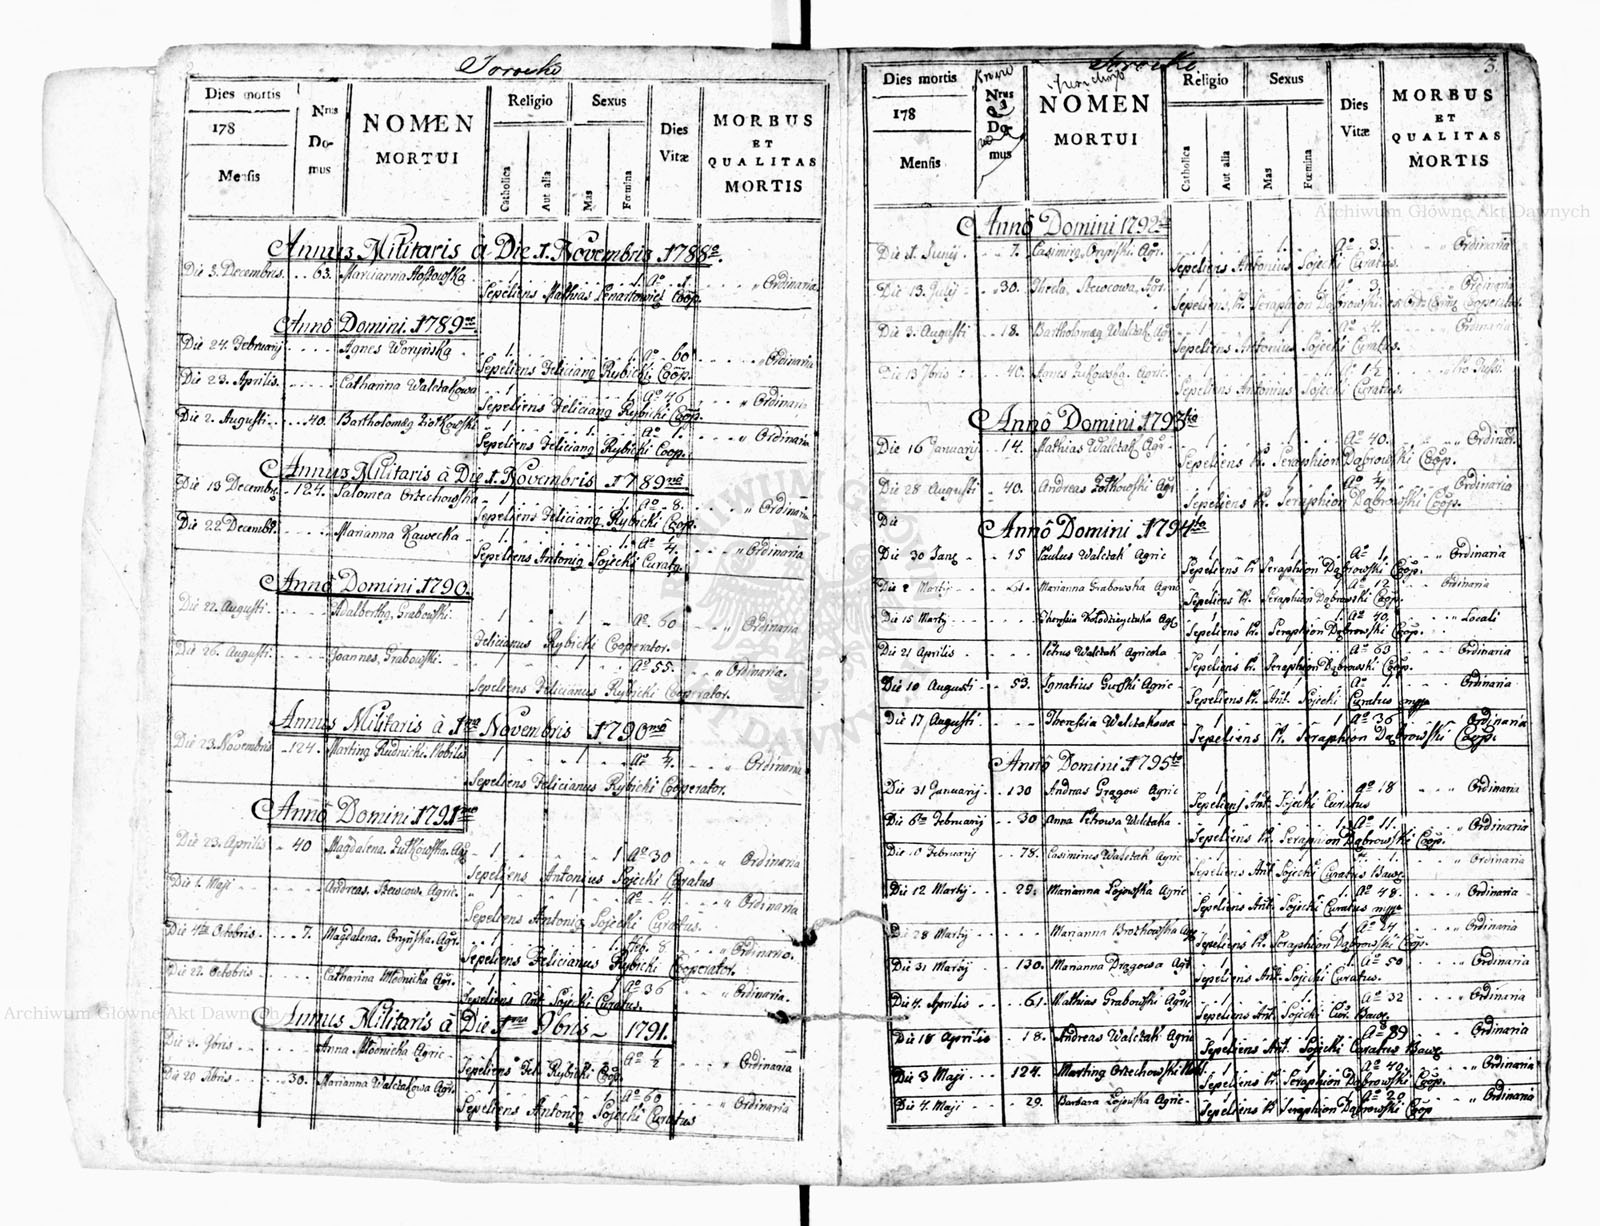 Dies mortis
178
Mensis
Nrus
Do-
mus
NOMEN
MORTUI
Religio
Catholica
Aut alia
Sexus
Mas
Fœmina
Dies
Vitæ
MORBUS
ET
QUALITAS
MORTIS
Annus Militaris à Die 1. Novembris 1788o.
Die 3. Decembris. 63. Marcianna 1. 1. Ao 1 " Ordinaria
Sepeliens Mathias Lenartowicz Coop.
Annô Domini 1789no.
Die 24. Februarij Agnes Woryńska 1. Ao 60 Ordinaria
Sepeliens Feliciang Rybicki Coop.
Die 23. Aprilis. Catharina Walczakowa 1 1. ao 46 " Ordinaria
Sepeliens Feliciang Rybicki Coop.
Die 2. Augusti. 40. Bartholomæg 1. 1. ao 1. " Ordinaria
Sepeliens Feliciang Rybicki Coop.
Annus Militaris à Die 1. Novembris 1789no
Die 13 Decembr. 124. Salomea Orzechowska 1 1 Ao 8. " Ordinaria
Sepeliens Feliciang Rybicki Coop.
Die 22. Decembr. Marianna Kawecka 1 1. Ao 4. " Ordinaria
Sepeliens Antonig Sojecki Curatg.
Annô Domini 1790.
Die 22. Augusti. Adalbertbg Grabowski. 1 1 Ao 60 " Ordinaria
Felicianus Rybicki Cooperator.
Die 26. Augusti. Joannes Grabowski. Ao 55. " Ordinaria.
Sepeliens Felicianus Rybicki Cooperator.
Annus Militaris à 1ma Novembris 1790mo
Die 23. Novembris 124. Marting Rudnicki Nobilis 1 1 ao 4. " Ordinaria
Sepeliens Felicianus Rybicki Cooperator.
Annô Domini 1791mo
Die 23. Aprilis 40 Magdalena Agr. 1 1 Ao 30 " Ordinaria
Sepeliens Antonius Sojecki Curatus
Die 1. Maji Andreas Agric. ao 4. " Ordinaria
Sepeliens Antonig Sojecki Curatus.
Die 4ta Octobris 7. Magdalena Onyńska. Agr. 1 1. Feb. 8 " Ordinario.
Sepeliens Felicianus Rybicki Cooperator.
Die 22. Octobris Catharina Młodnicka Agr. 1 1 ao 36 " Ordinaria.
Sepeliens Ant. Sojecki Curatus.
Annus Militaris à Die 1ma 9bris 1791.
Die 2. 9bris Anna Młodnicka Agric. Ao ½ " Ordinaria
Sepeliens Fel. Rybicki Coop.
Die 20 30. Marianna Walczakowa Agr. 1. Ao 60 " Ordinaria
Sepeliens Antonig Sojecki Curatus
3.
Dies mortis
178
Mensis
Nrus
Do-
mus
NOMEN
MORTUI
Religio
Catholica
Aut alia
Sexus
Mas
Fœmina
Dies
Vitæ
MORBUS
ET
QUALITAS
MORTIS
Annô Domini 1792do
Die 1. Junij 7. Casimirg Onyński Agr. 1 1. Ao 3. " Ordinaria
Sepeliens Antonius Sojecki Curatus.
Die 13. July 30. Agr. 1 1. Ao 3. " Ordinaria
Sepeliens Fr. Seraphion Dąbrowski Cooperator.
Die 3. Augusti 18. Bartholomæg Walczak Agr. 1 1. Ao 4. " Ordinaria
Sepeliens Antonius Sojecki Curatus.
Die 13 40. Agnes Agric. 1 1 1½
Sepeliens Antonius Sojecki Curatus.
Annô Domini 1793tio
Die 16 Januarij 14. Mathias Walczak Agr. 1 1. Ao 40. " Ordinar.
Sepeliens Fr. Seraphion Dąbrowski Coop.
Die 28 Augusti 40. Andreas Agr 1 1 ao 4. " Ordinaria
Sepeliens Fr. Seraphion Dąbrowski Coop.
Die
Annô Domini 1794to
Die 30 15 Paulus Walczak Agric 1 1 Ao 1. " Ordinaria
Sepeliens Fr Seraphion Dąbrowski Coop.
Die 2 Martij 61. Marianna Grabowska Agric 1 1 Ao 12 Ordinaria
Sepeliens Fr. Seraphion Dąbrowski Coop.
Die 15 Martij Theresia Agr. 1 1. ao 40. " Locali
Sepeliens Fr. Seraphion Dąbrowski Coop.
Die 21 Aprilis Petrus Walczak Agricola 1 1 ao 63 Ordinaria
Sepeliens Fr. Seraphion Dąbrowski Coop.
Die 10 Augusti 53. Ignatius Agric 1 1 ao 1. Ordinaria
Sepeliens Fr. Ant. Sojecki Curatus mpp
Die 17 Augusti Theressia Walczakowa 1 1 ao 36 Ordinaria
Sepeliens Fr. Seraphion Dąbrowski Coop.
Annô Domini 1795to
Die 31 Januarij 130 Andreas Agric 1 1 ao 18 " Ordinaria
Sepeliens Ant. Sojecki Curatus
Die 6ta Februarij 30 Anna Petrowa Walczaka 1. Ao 11. " Ordinaria
Sepeliens Fr. Seraphion Dąbrowski Coop.
Die 10 Februarij 78. Casimirus Walczak Agric 1 1 1. " Ordinaria
Sepeliens Ant Sojecki Curatus
Die 12 Martij 29. Marianna Łojewska Agric 1 1 Ao 48. " Ordinaria
Sepeliens Ant. Sojecki Curatus mpp
Die 28 Martij Marianna Agr 1 1 ao 24 " Ordinaria
Sepeliens Fr. Seraphion Dąbrowski Coop.
Die 31 Martij 130. Marianna Agr 1 1. Ao 50 " Ordinaria
Sepeliens Ant. Sojecki Curatus.
Die 4. Aprilis 61. Mathias Grabowski Agric 1 1. Ao 32 " Ordinaria
Sepeliens Ant. Sojecki Cur.
Die 18 Aprilis 18. Andreas Walczak Agric 1 1 Ao 89 " Ordinaria
Sepeliens Ant. Sojecki Curatus
Die 3 Maji 124. Marting Orzechowski 1 1 Ao 40. " Ordinaria
Sepeliens Fr. Seraphion Dąbrowski Coop.
Die 4. Maji 29. Barbara Łojewska Agric 1 1. ao 20 " Ordinaria
Sepeliens Fr Seraphion Dąbrowski Coop
Archiwum Główne Akt Dawnych
Archiwum Główne Akt Dawnych